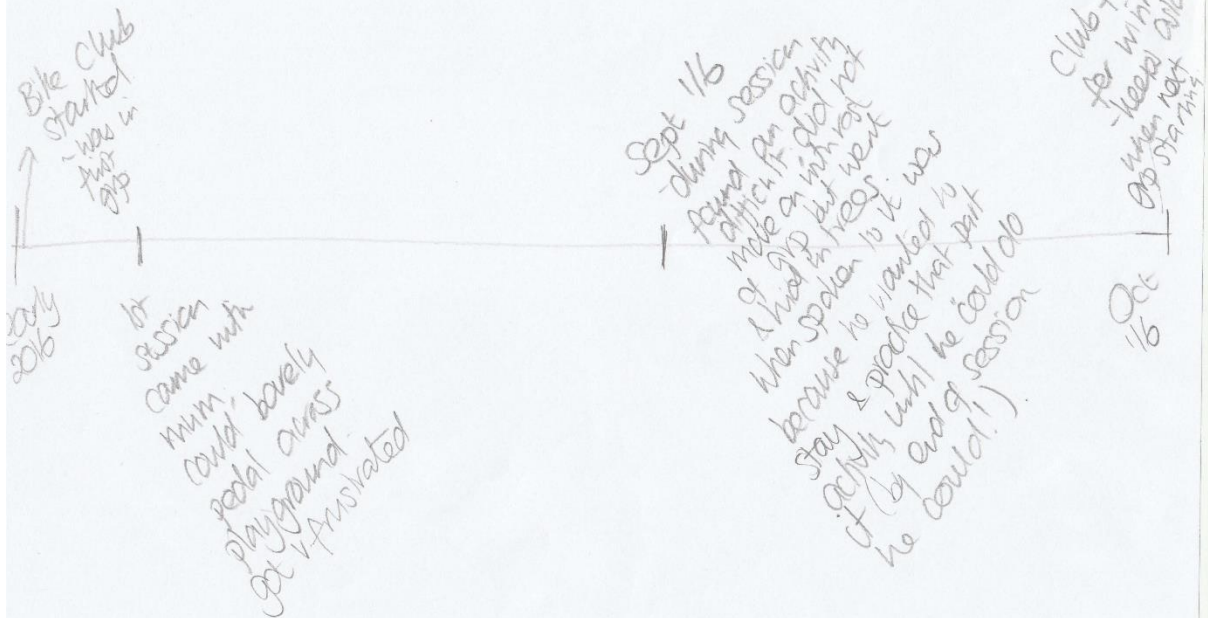 Bike Club
started
- was in
first
grp
early
2016
1st
session
came with
mum,
could barely
pedal across
playground.
Got v frustrated
Sept '16
- during session
found fun activity
difficult - did not
make an
of grp but went
& hid in trees.
When spoken to it was
because he wanted to
stay & practice that part
activity until he could do
it (by end of session
he could!)
Club
for
- keeps
when next
grp starting
Oct
'16